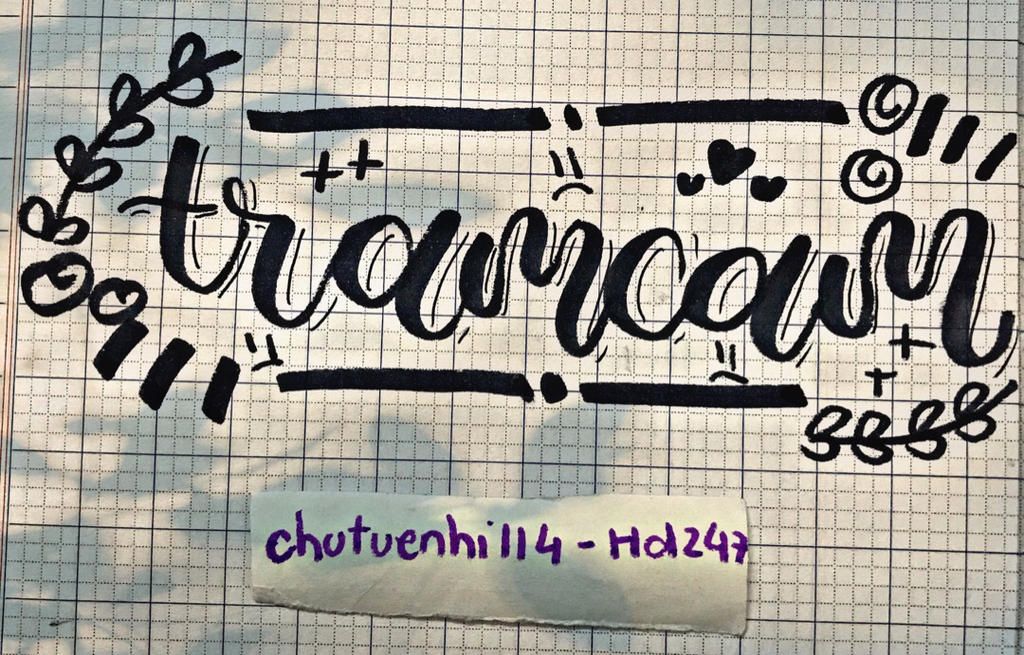 tramcam
chutuenhi114 - Hd247